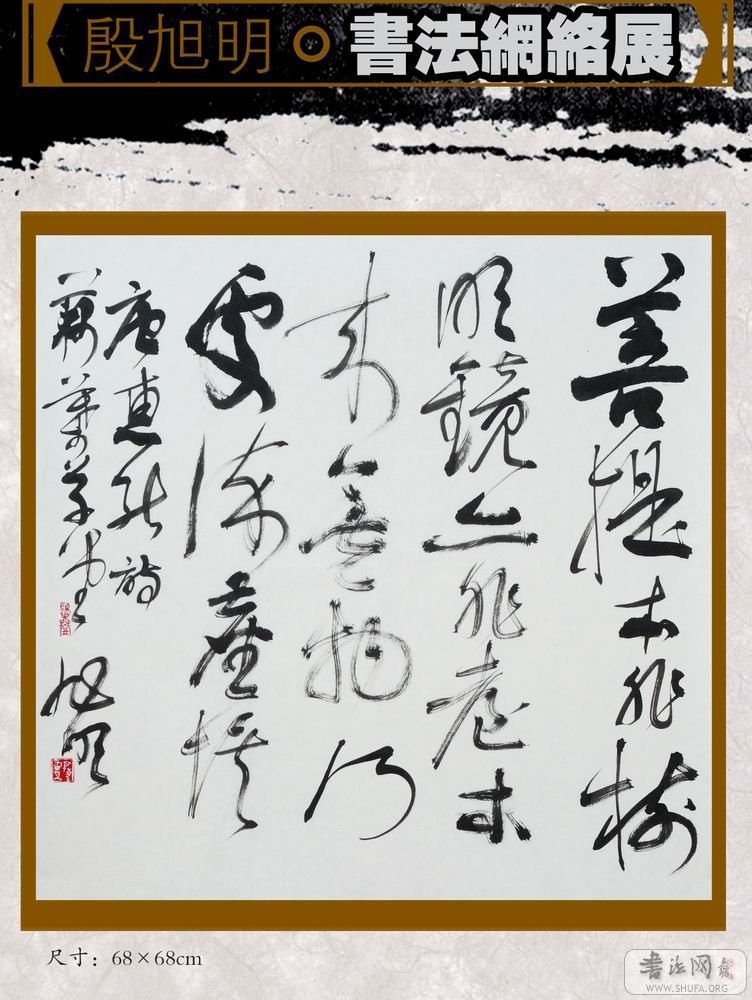 殷旭明 書法網絡展
菩提本非樹
明鏡亦非臺本
來無物何
處染塵埃
唐惠能詩
草堂 旭明
尺寸：68×68cm
書法网
WWW.SHUFA.ORG